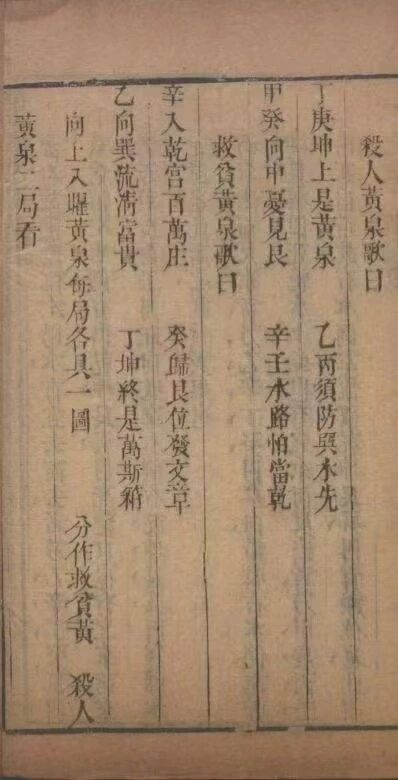 殺人黃泉歌曰
丁庚坤上是黃泉 乙丙須防巽水先
甲癸向中憂見艮 辛壬水路怕當乾
救貧黃泉歌曰
辛入乾宮百萬庄 癸歸艮位發文章
乙向巽流清富貴 丁坤終是萬斯箱
向上入曜黃泉每局各具一圖 分作救貧黃 殺人
黃泉二局看